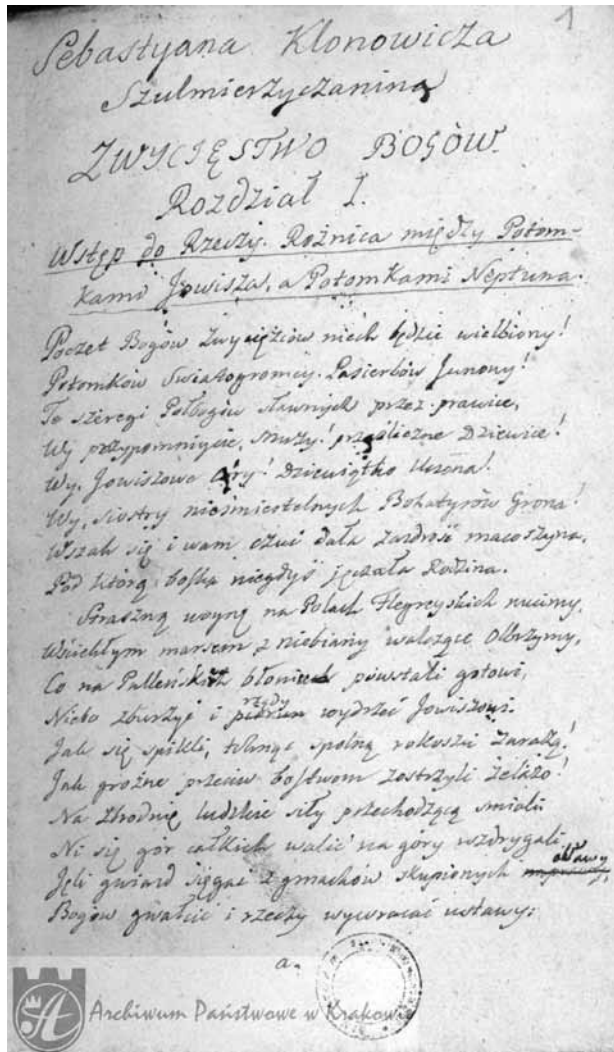 1
Sebastyana Klonowicza
Szulmierzyczanina
ZWYCIĘSTWO BOGÓW.
Rozdział I.
Wstęp do Rzeczy. Rożnica między Potom-
kami Jowisza, a Potomkami Neptuna.
Poczet Bogów Zwycięzców niech będzie wielbiony!
Potomków Swiatogromcy. Pasierbów Junony!
Te szeregi Połbogów sławnych przez prawice,
Wy przypomniycie, Muzy! prześliczne Dziewice!
Wy, Jowiszowe Córy! Dziewiątko Uczona!
Wy, siostry nieśmiertelnych Bohatyrów Grona!
Wszak się i wam czuć dała zazdrość macoszyna,
Pod którą boska niegdyś jęczała Rodzina.
Straszną woynę na Polach Flegreyskich nucimy,
Wściekłym marsem z niebiany walczące Olbrzymy,
Co na Palleńskich błoniach powstali gotowi,
Niebo zburzyć i rządy wydrzeć Jowiszowi.
Jak się spikli, tchnąc spolną rokoszu zarazą!
Jak groźne przeciw bostwom zostrzyli żelazo!
Na zbrodnię ludzkie siły przechodzącą śmiali
Ni się gór całkich walić na góry wzdrygali.
Jęli gwiazd sięgać z gmachów skupionych
Bogów gwałcić i rzeczy wywracać ustawy:
a.
Archiwum Państwowe w Krakowie